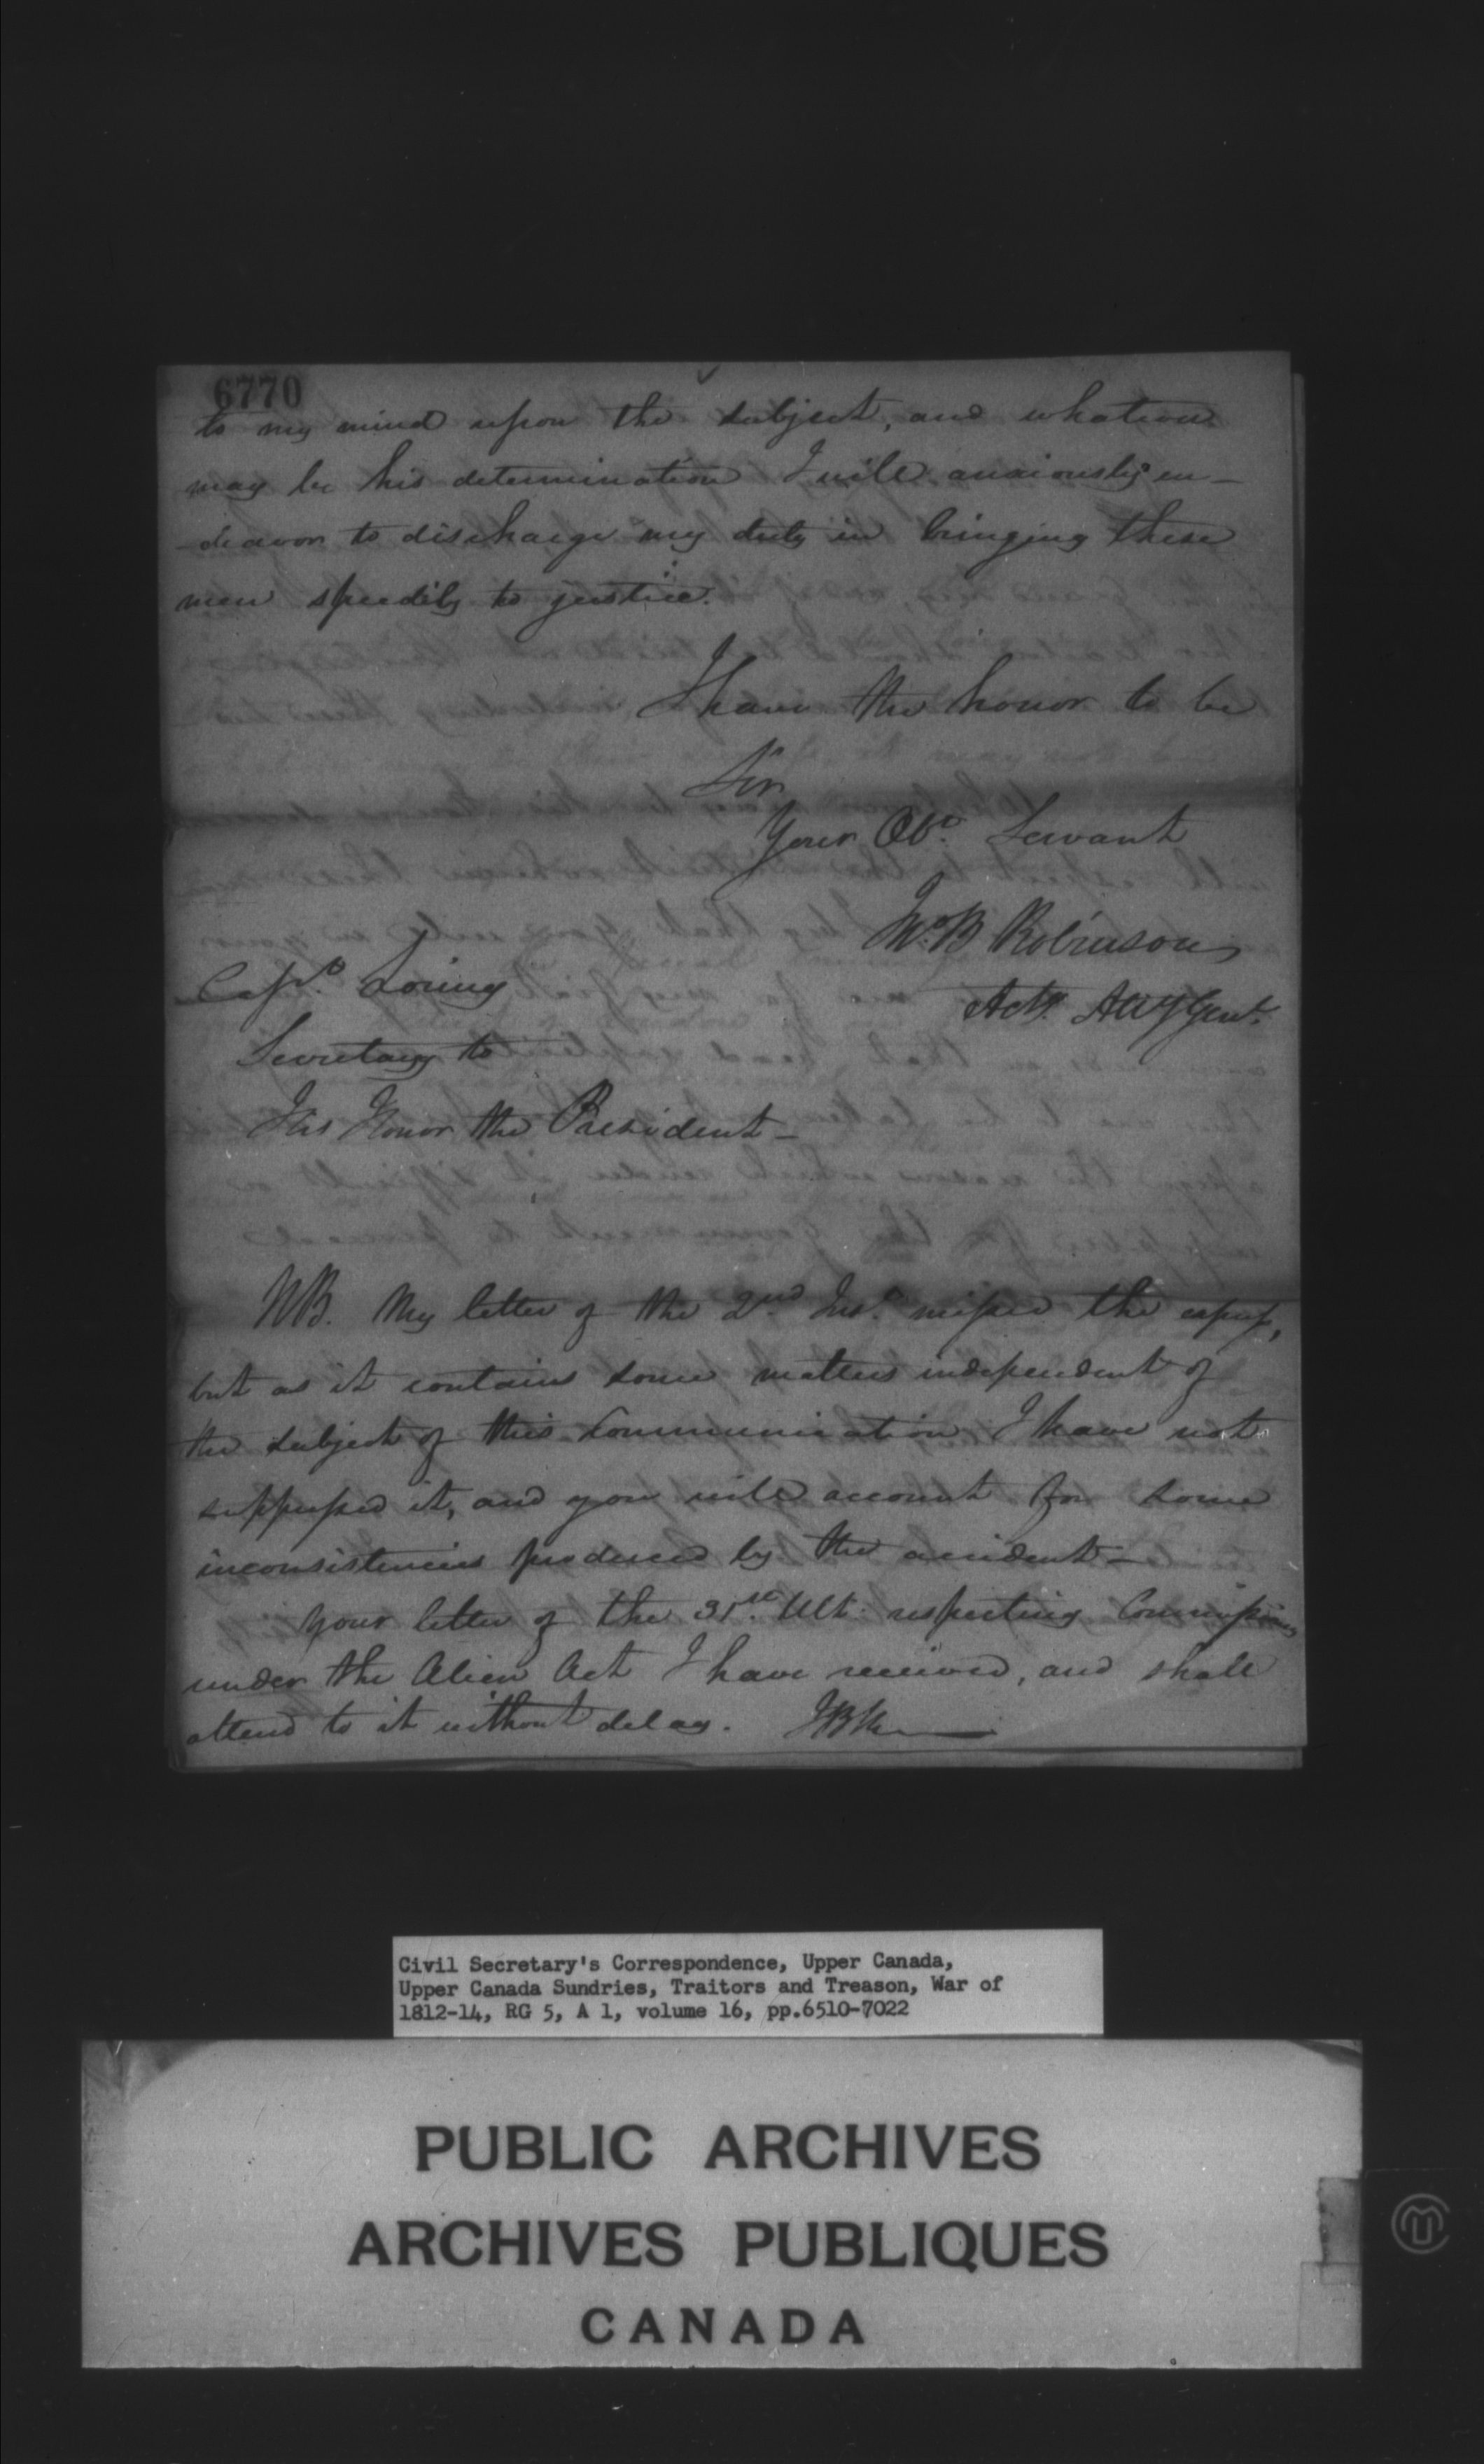 6770
to my mind upon the subject, and whatever
may be his determination I will anxiously en-
-deavor to discharge my duty in bringing these
men speedily to justice.
I have the honor to be
Sir
Your Obt. Servant
Jno. B Robinson
Actg. Atty Genl.
Capt. Loring
Secretary to
His Honor the President -
NB. My letter of the 2nd Inst. missed the express,
but as it contains some matters independent of
the subject of this communication I have not
suppressed it, and you will account for some
inconsistencies produced by the accident -
Your letter of the 31st. Ult. respecting Commissions
under the Alien Act I have received, and shall
attend to it without delay. JBR
Civil Secretary's Correspondence, Upper Canada,
Upper Canada Sundries, Traitors and Treason, War of
1812-14, RG 5, A 1, volume 16, pp.6510-7022
PUBLIC ARCHIVES
ARCHIVES PUBLIQUES
CANADA